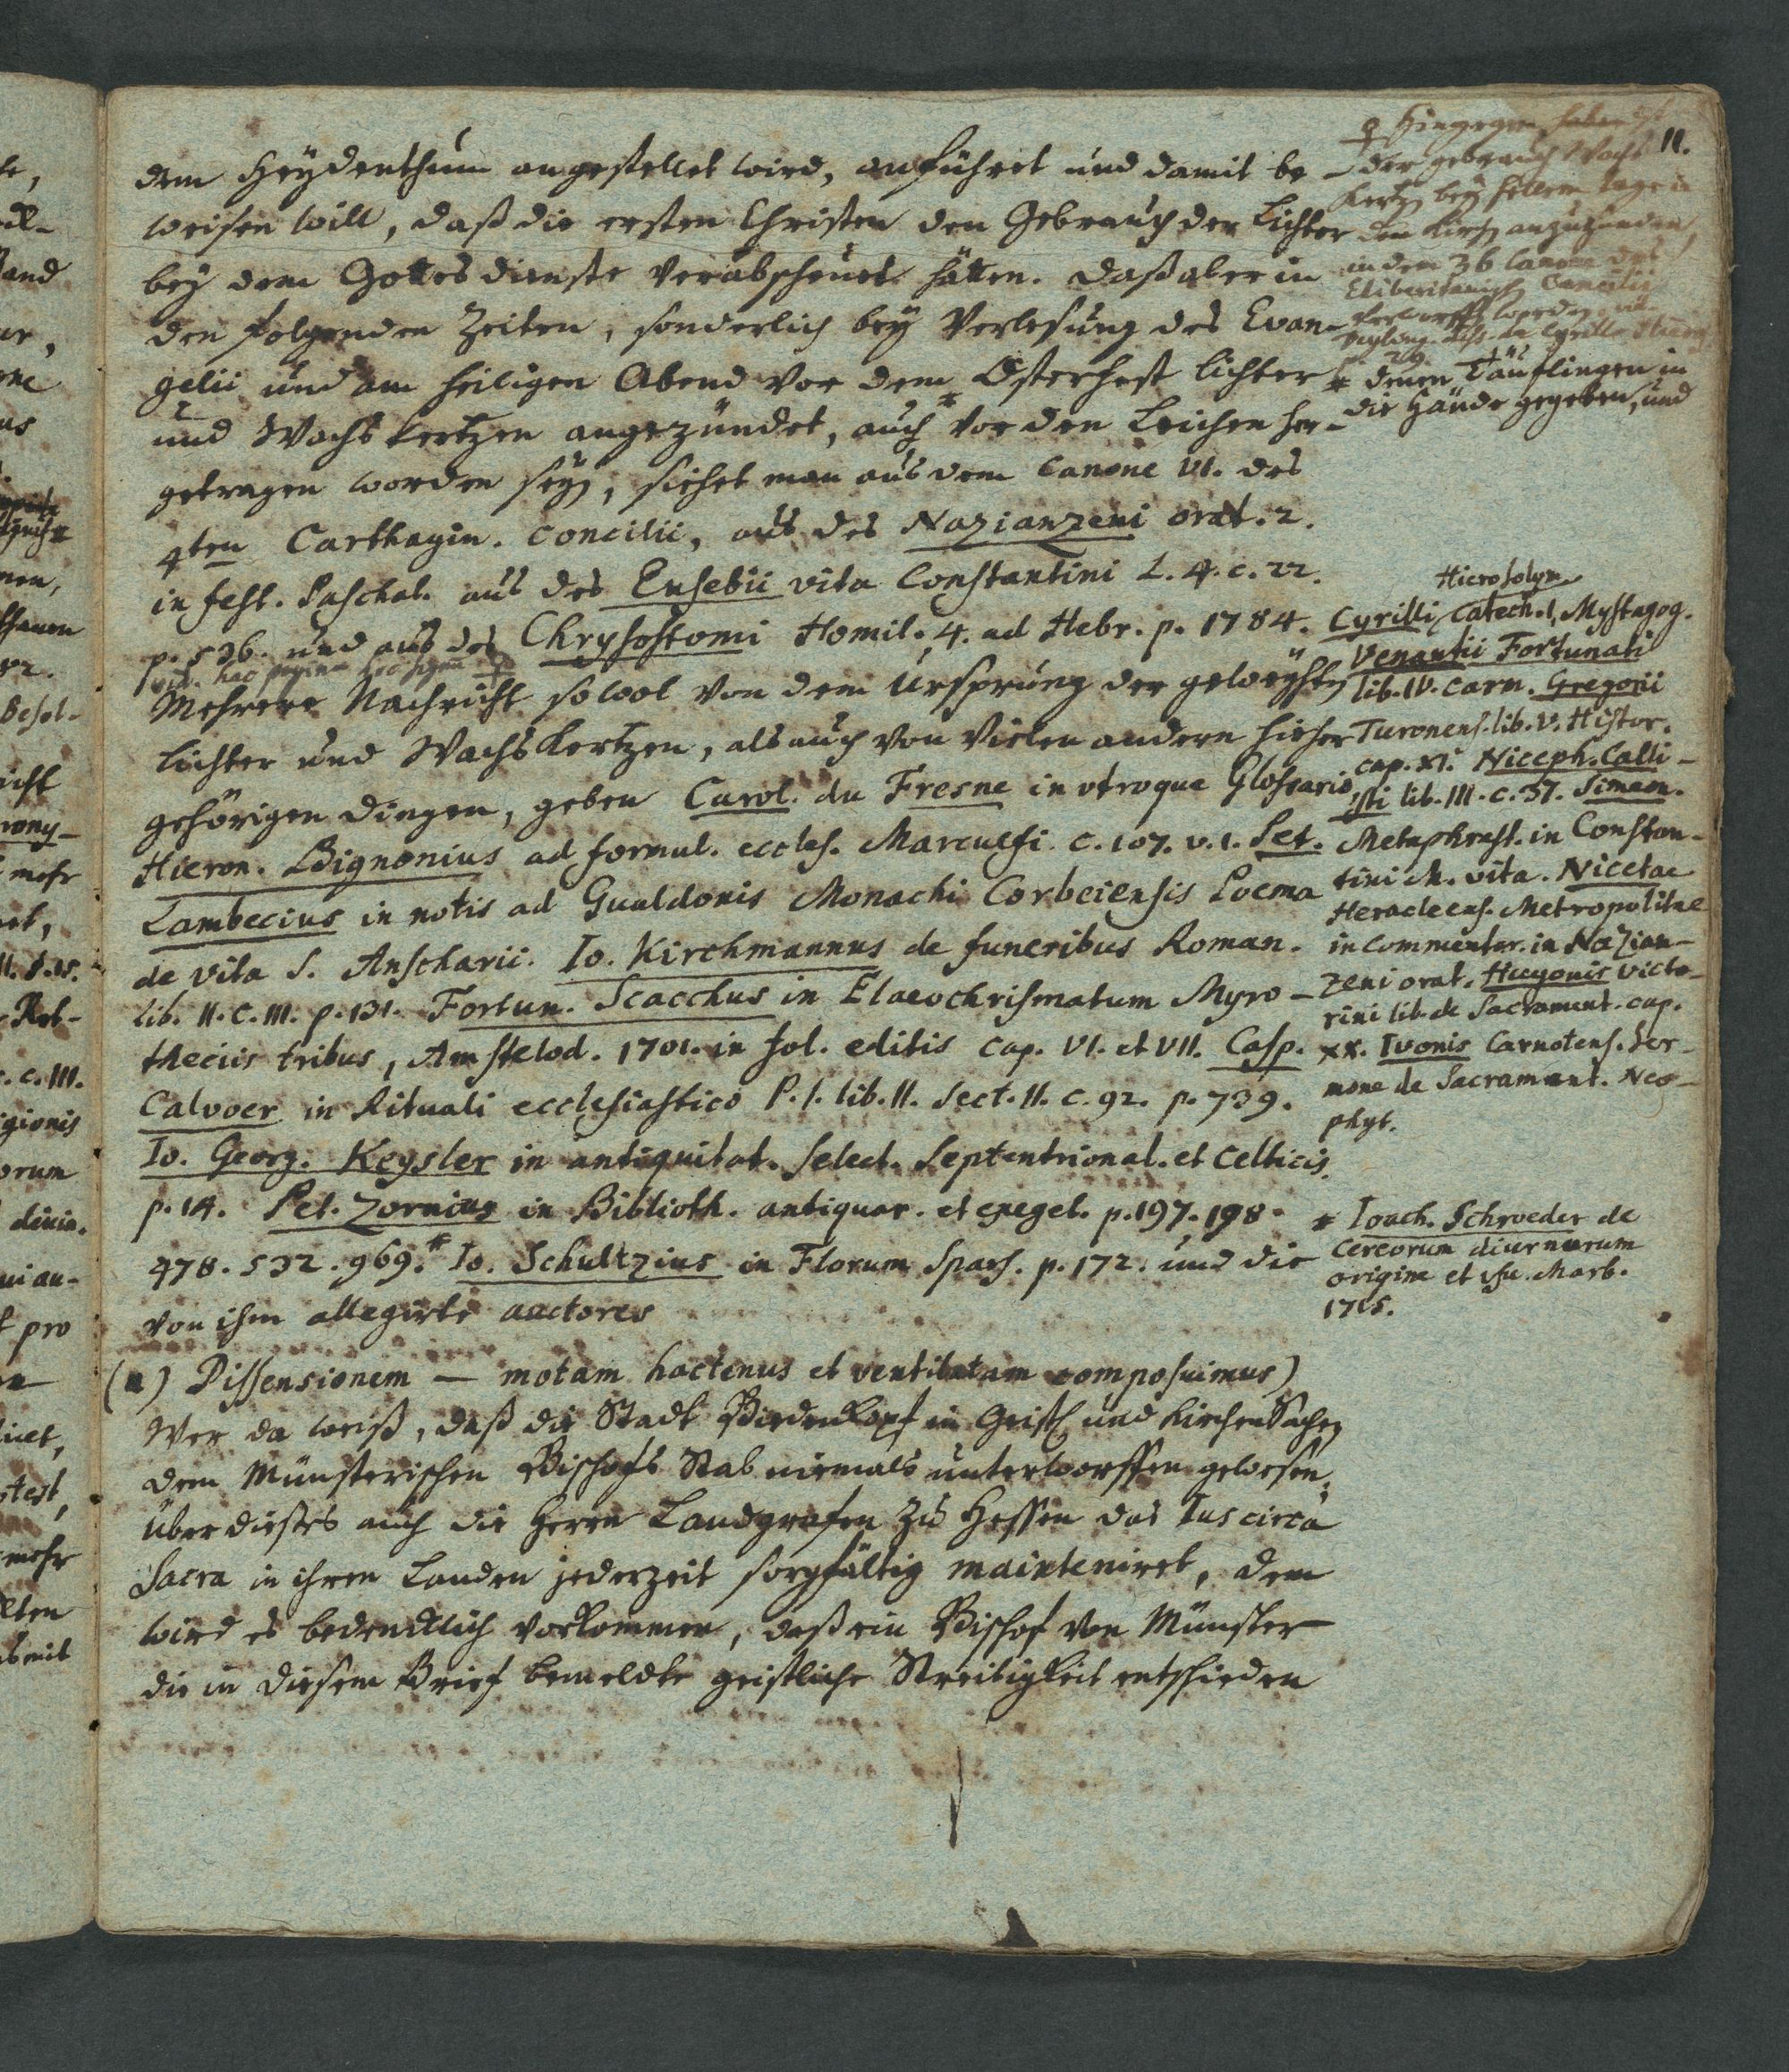 11.
dem Heÿdenthum angestellet wird, anführet und damit be-
weisen will, daß die ersten Christen den Gebrauch der Lichter
beÿ dem Gottesdienste verabscheuet hätten. Daß aber in
den folgenden Zeiten, sonderlich beÿ Verlesung des Evan-
gelii und am heiligen Abend vor dem Osterfest Lichter
und Wachskertzen angezündet, auch * vor den Leichen her-
getragen worden seÿ, siehet man aus dem Canone VI. des
4ten Carthagin. Concilii, aus des Nazianzeni orat. 2.
in fest. Paschal. aus des Eusebii vita Constantini L. 4. c. 22.
p. 536. und aus des Chrysostomi Homil. 4. ad Hebr. p. 1784.
vid. hac pagina hoc signum
Mehrere Nachricht sowol von dem Ursprung der geweÿhten
Lichter und Wachskertzen, als auch von vielen andern hieher
gehörigen Dingen, geben Carol. du Fresne in utroque Glossario,
Hieron. Bignonius ad formul. eccles. Marculfi c. 107. v. 1. Pet.
Lambecius in notis ad Gualdonis Monachi Corbeiensis Poema
de vita S. Anscharii. Io. Kirchmannus de funeribus Roman.
lib. II. c. III. p. 131. Fortun. Scacchus in Elaeochrismatum Myro-
theciis tribus, Amstelod. 1701. in fol. editis cap. VI. et VII. Casp.
Calvoer in Rituali ecclesiastico P. I. lib. II. Sect. II. c. 92. p. 739.
Io. Georg. Keysler in antiquitat. select. Septentrional. et Celticis
p. 14. Pet. Zornius in Biblioth. antiquar. et exeget. p. 197. 198.
478. 532. 969. * Io. Schultzius in Florum Spars. p. 172. und die
von ihm allegirte auctores
(n) Dissensionem — motam hactenus et ventilatam composuimus)
Wer da weiß, daß die Stadt Biedenkopf in Geistl. und Kirchen Sachen
dem Münsterischen Bischofs Stab niemals unterworffen gewesen,
über dieses auch die Herrn Landgrafen zu Hessen das Ius circa
Sacra in ihren Landen jederzeit sorgfältig mainteniret, dem
wird es bedencklich vorkommen, daß ein Bischof von Münster
die in diesem Brief bemeldte geistliche Streitigkeit entschieden
Hingegen haben ist
der gebrauch Wachs
Kertzen beÿ hellem tage in
den Kirchen anzuzünden,
in dem 36 Canone des
Eliberitanischen Concilii
verworffen worden.
* denen Täuflingen in
die Hände gegeben, und
Hierosolym.
Cyrilli Catech. I. Mystagog.
Venantii Fortunati
lib. IV. carm. Gregorii
Turonens. lib. V. Histor.
cap. XI. Niceph. Calli-
sti lib. III. c. 37. Simeon.
Metaphrast. in Constan-
tini M. vita. Nicetae
Heracleens. Metropolitae
in commentar. in Nazian-
zeni orat. Hugonis Victo-
rini lib. de Sacrament. cap.
XX. Ivonis Carnotens. Ser-
mone de Sacrament. Neo-
phyt.
* Ioach. Schroeder de
Cereorum diurnorum
origine et usu. Marb.
1715.